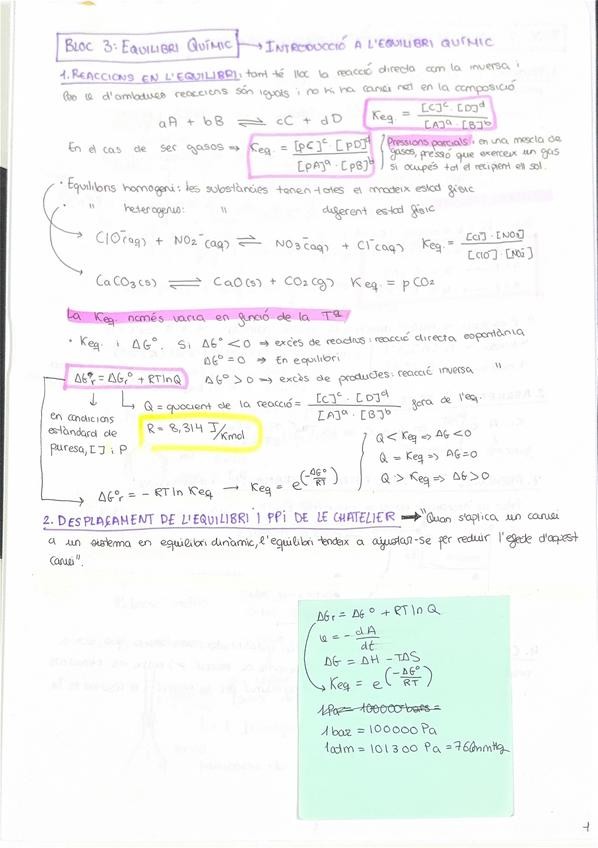 BLOC 3: EQUILIBRI QUÍMIC → INTRODUCCIÓ A L'EQUILIBRI QUÍMIC
1. REACCIONS EN L'EQUILIBRI: tant té lloc la reacció directa com la inversa i
les v d'ambdues reaccions són iguals i no hi ha canvi net en la composició
aA + bB ⇌ cC + dD Keq = [C]^c · [D]^d / [A]^a · [B]^b
En el cas de ser gasos → Keq = [pC]^c · [pD]^d / [pA]^a · [pB]^b
Pressions parcials: en una mescla de
gasos, pressió que exerceix un gas
si ocupés tot el recipient ell sol.
· Equilibris homogenis: les substàncies tenen totes el mateix estat físic
· " heterogenis: " diferent estat físic
ClO⁻(aq) + NO2⁻(aq) ⇌ NO3⁻(aq) + Cl⁻(aq) Keq = [Cl⁻] · [NO3⁻] / [ClO⁻] · [NO2⁻]
CaCO3(s) ⇌ CaO(s) + CO2(g) Keq = pCO2
La Keq. només varia en funció de la Tª
· Keq i ΔG°. Si ΔG° < 0 → excés de reactius: reacció directa espontània
ΔG° = 0 → En equilibri
ΔG°r = ΔGr° + RTlnQ ΔG° > 0 → excés de productes: reacció inversa "
Q = quocient de la reacció = [C]^c · [D]^d / [A]^a · [B]^b fora de l'eq.
en condicions
estàndard de
puresa, [ ] i P
R = 8,314 J/Kmol
Q < Keq => ΔG < 0
Q = Keq => ΔG = 0
Q > Keq => ΔG > 0
ΔG°r = - RT ln Keq → Keq = e^(-ΔG°/RT)
2. DESPLAÇAMENT DE L'EQUILIBRI I PPI DE LE CHATELIER → "Quan s'aplica un canvi
a un sistema en equilibri dinàmic, l'equilibri tendeix a ajustar-se per reduir l'efecte d'aquest
canvi".
ΔGr = ΔG° + RT lnQ
v = - dA/dt
ΔG = ΔH - TΔS
Keq = e^(-ΔG°/RT)
1Pa = 100000 bars =
1 bar = 100000 Pa
1 atm = 101300 Pa = 760mmHg
1